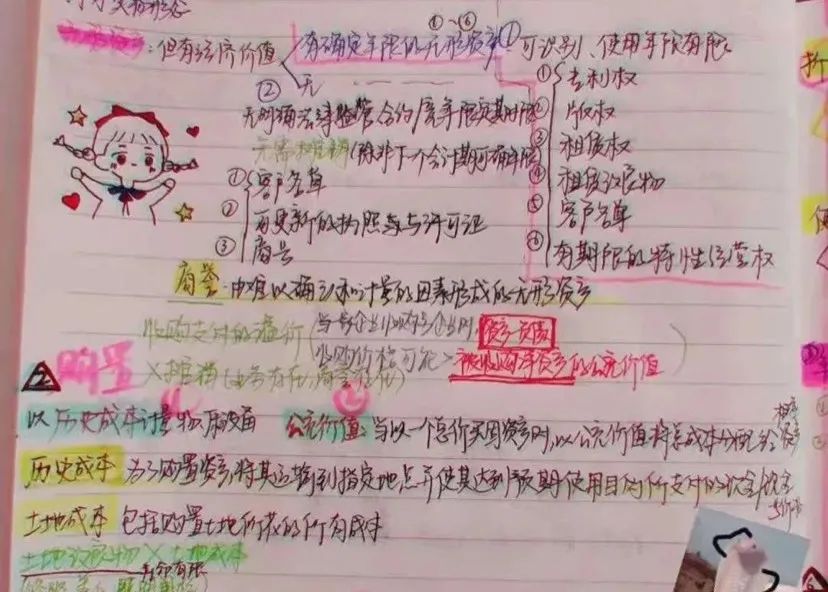 但有经济价值
有确定年限的无形资产 ① 可识别、使用年限有限
①~⑥
② 无
① 专利权
② 版权
③ 租赁权
④ 租赁改良物
⑤ 客户名单
⑥ 有期限的特性经营权
无明确法律监管合约
无需摊销(除非下一个会计期可确年限
① 客户名单
② 可更新的执照与许可证
③ 商号
商誉:由难以确认和计量的因素形成的无形资产
收购支付的溢价(当一个企业收购另一个企业时,资产-负债
收购价格可能>被收购净资产的公允价值)
×摊销(业务存在,商誉
2 购置
以历史成本计量
公允价值:当以一个总价买固资产时,以公允价值将总成本分配给
历史成本 为了购置资产,将其运输到指定地点并使其达到预期使用目的所支付的现金/现金
等价物
土地成本 包括购置土地所花的所有成本
土地改良物×土地成本
寿命有限